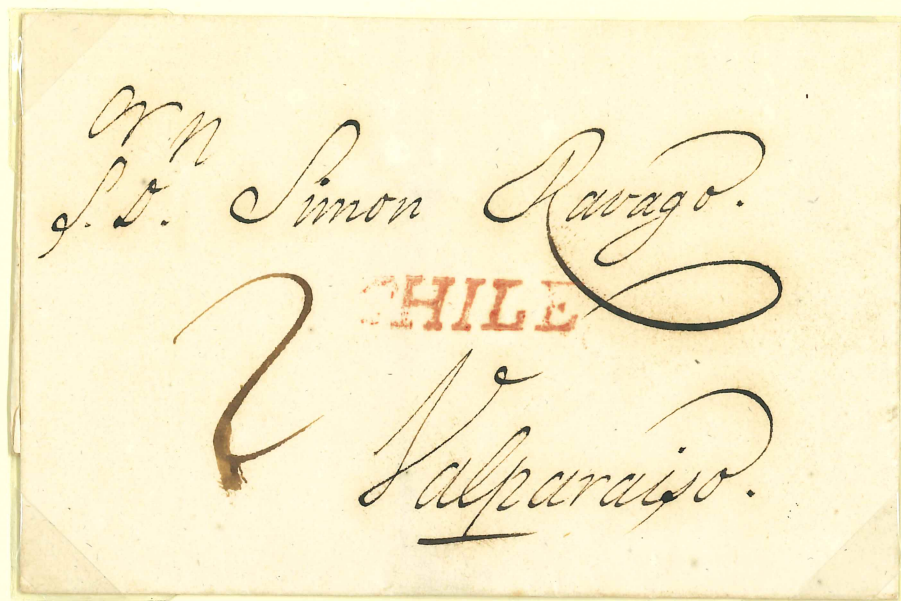 S. D. Simon Ravago.
CHILE
2
Valparaiso.